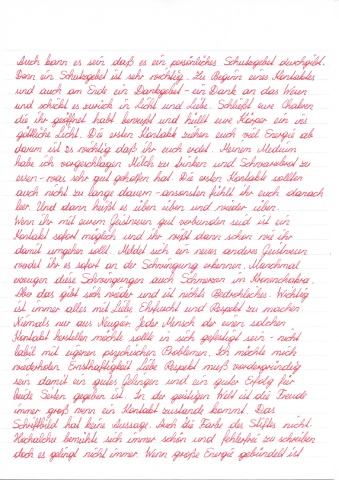 Auch kann es sein daß es ein persönliches Schutzgebet durchgibt.
Denn ein Schutzgebet ist sehr wichtig. Zu Beginn eines Kontaktes
und auch am Ende ein Dankgebet - ein Dank an das Wesen
und schickt es zurück in Licht und Liebe. Schließt eure Chakren
die ihr geöffnet habt bewußt und hüllt eure Körper ein ins
göttliche Licht. Die ersten Kontakte ziehen euch viel Energie ab
darum ist es wichtig daß ihr euch erdet. Meinem Medium
habe ich vorgeschlagen Milch zu trinken und Schwarzbrot zu
essen - was sehr gut geholfen hat. Die ersten Kontakte sollten
auch nicht zu lange dauern - ansonsten fühlt ihr euch danach
leer. Und dann heißt es üben üben und wieder üben.
Wenn ihr mit eurem Geistwesen gut verbunden seid ist ein
Kontakt sofort möglich und ihr wißt dann schon wie ihr
damit umgehen sollt. Meldet sich ein neues anderes Geistwesen
werdet ihr es sofort an der Schwingung erkennen. Manchmal
erzeugen diese Schwingungen auch Schmerzen im Kronenchakra.
Aber das gibt sich wieder und ist nichts Bedrohliches. Wichtig
ist immer alles mit Liebe Ehrfurcht und Respekt zu machen.
Niemals nur aus Neugier. Jeder Mensch der einen solchen
Kontakt herstellen möchte sollte in sich gefestigt sein - nicht
labil mit eigenen psychischen Problemen. Ich möchte mich
wiederholen Ernsthaftigkeit Liebe Respekt muß vordergründig
sein damit ein gutes Gelingen und ein guter Erfolg für
beide Seiten gegeben ist. In der geistigen Welt ist die Freude
immer groß wenn ein Kontakt zustande kommt. Das
Schriftbild hat keine Aussage. Auch die Farbe des Stiftes nicht.
bemühte sich immer schön und fehlerfrei zu schreiben
doch es gelingt nicht immer. Wenn große Energie gebündelt ist